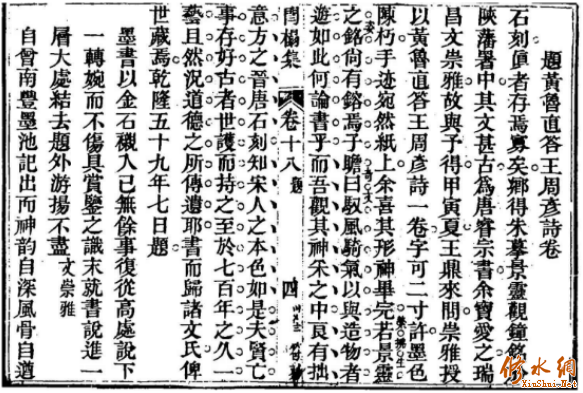 題黃魯直答王周彦詩卷
石刻眞者存焉尊矣鄉得朱摹景靈觀鐘銘於
陜藩署中其文甚古爲唐睿宗書余寶愛之瑞
昌文崇雅故與予得甲寅夏王鼎來問崇雅授
以黃魯直答王周彦詩一卷字可二寸許墨色
陳朽手迹宛然紙上余喜其形神畢完若景靈
之銘尙有鎔焉子瞻曰馭風騎氣以與造物者
遊如此何論書乎而吾觀其神采之中良有拙
榻集 卷十八 題 四
意方之晉唐石刻知宋人之本色如是夫賢亡
事存好古者世護而持之至於七百年之久一
藝且然況道德之所傳遺耶書而歸諸文氏俾
世藏焉乾隆五十九年七日題
墨書以金石襯入已無餘事復從高處說下
一轉婉而不傷具賞鑒之識末就書說進一
層大處結去題外游揚不盡 文崇雅
自曾南豐墨池記出而神韵自深風骨自遒
修水網
XiuShui.Net